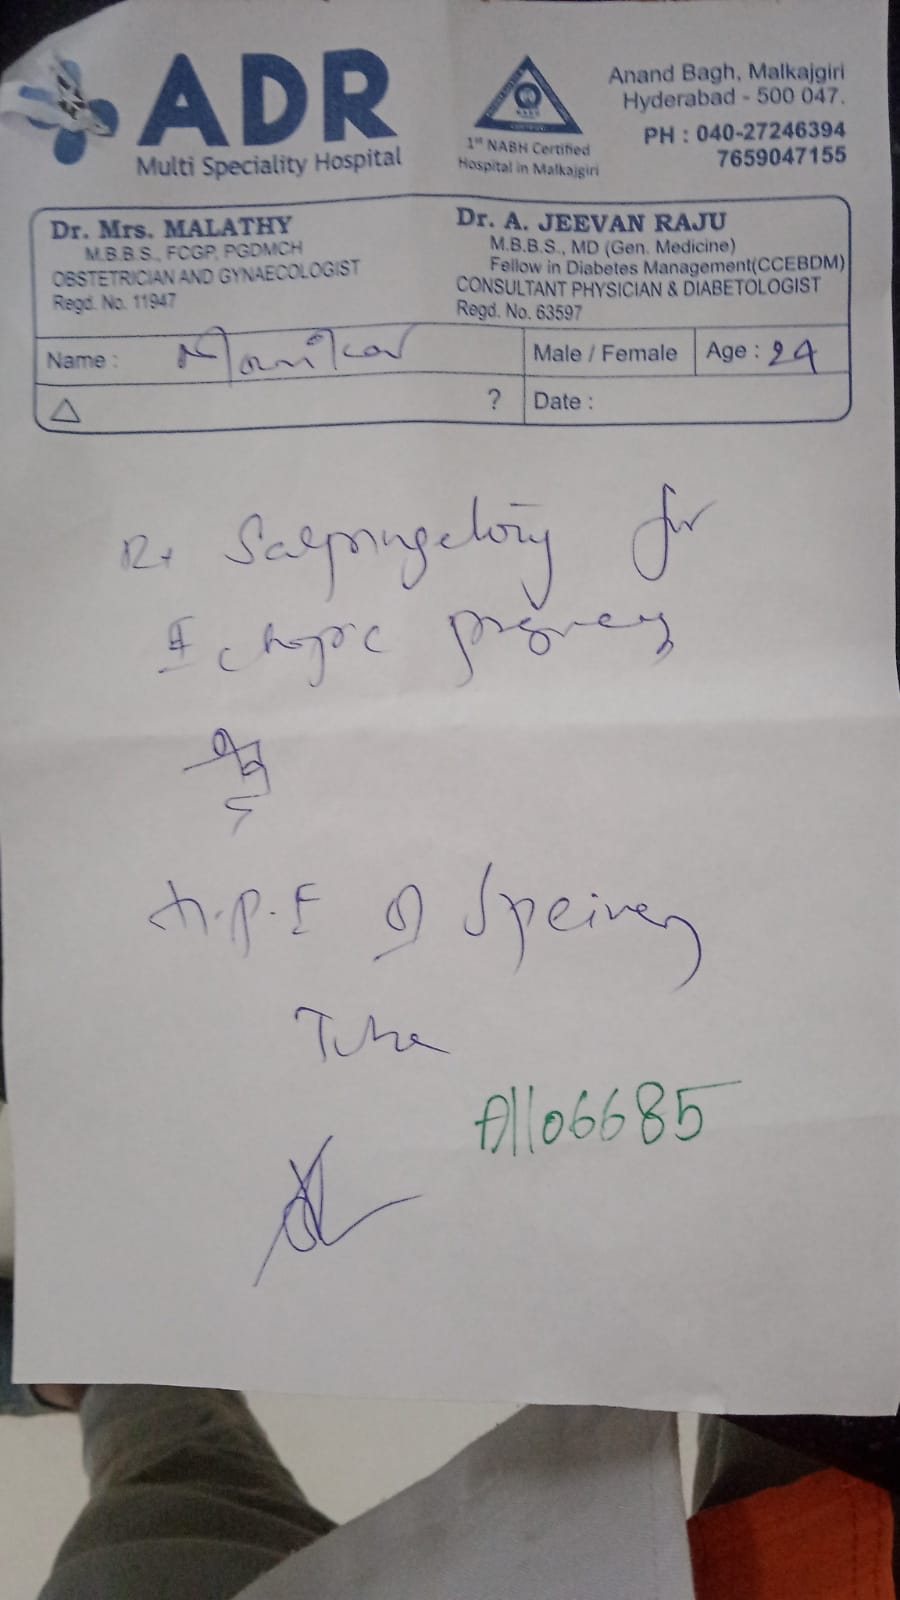 ADR
Multi Speciality Hospital
1st NABH Certified
Hospital in Malkajgiri
Anand Bagh, Malkajgiri
Hyderabad - 500 047.
PH : 040-27246394
7659047155
Dr. Mrs. MALATHY
M.B.B.S., FCGP, PGDMCH
OBSTETRICIAN AND GYNAECOLOGIST
Regd. No. 11947
Dr. A. JEEVAN RAJU
M.B.B.S., MD (Gen. Medicine)
Fellow in Diabetes Management(CCEBDM)
CONSULTANT PHYSICIAN & DIABETOLOGIST
Regd. No. 63597
Name :
Male / Female
Age : 24
△ ?
Date :
Rt Salpingectomy for
Ectopic pregnancy
H.P.E of Specimen
Tube
A1106685